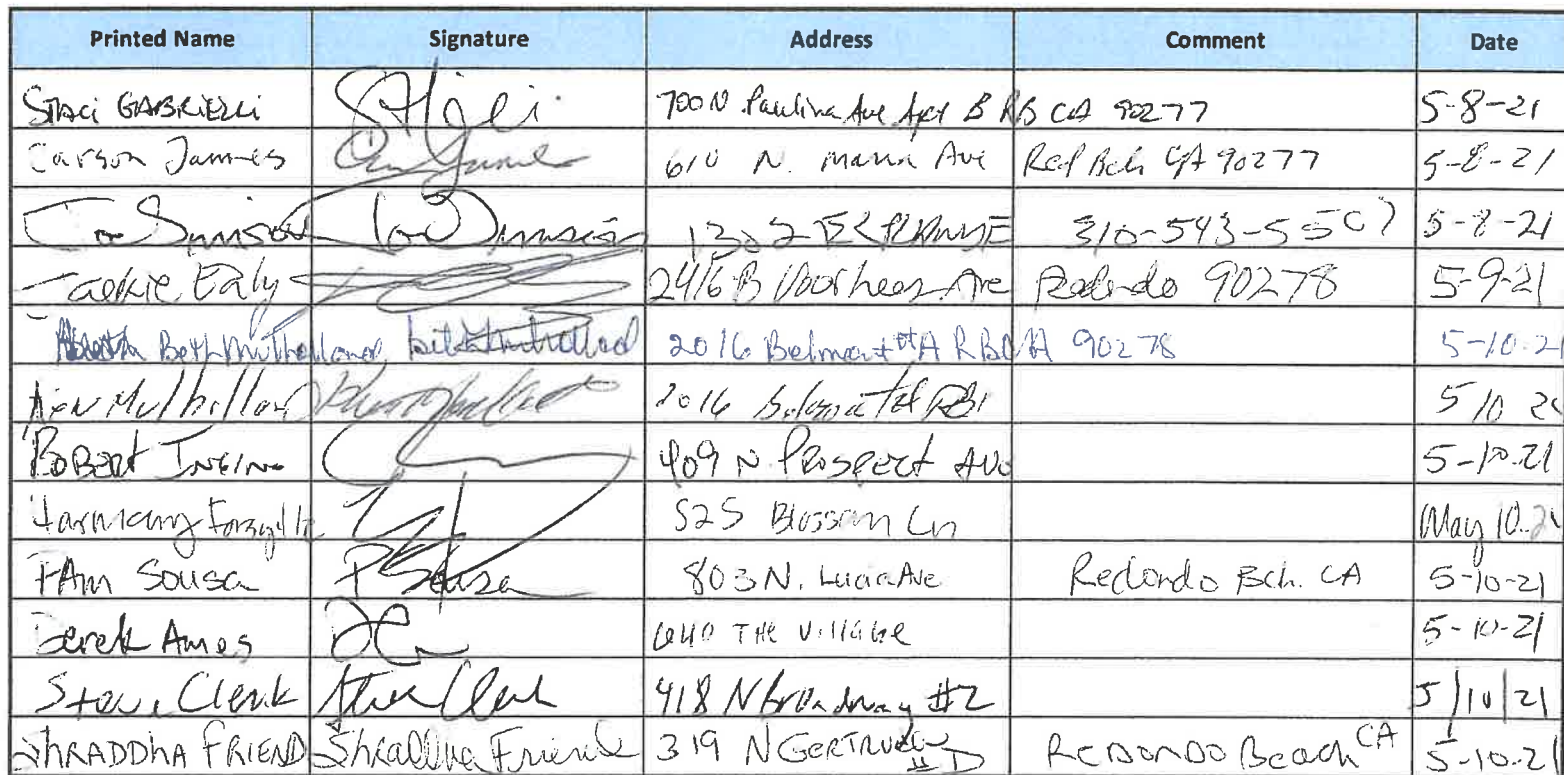 Printed Name Signature Address Comment Date
Staci GABRIELLI 700 N Paulina Ave Apt B RB CA 90277 5-8-21
Carson Jammes 610 N. Maria Ave Red Bch CA 90277 5-8-21
1302 310-543-5507 5-8-21
Jackie Ealy 2416 B Voorhees Ave Redondo 90278 5-9-21
Beth Mulholland 2016 Belmont #A RB CA 90278 5-10-21
Mulholland 2016 5 10 21
ROBERT 409 N. PROSPECT AVE 5-10-21
Harmony Forsythe 525 Blossom Ln May 10. 21
PAM SOUSA P Sousa 803 N. Lucia Ave Redondo Bch. CA 5-10-21
Derek Ames 640 THE VILLAGE 5-10-21
Steve Clerk 418 N Broadway #2 5/10/21
ShRADDhA FRIEND Shraddha Friend 319 N GERTRUDA #D REDONDO Beach CA 5-10-21